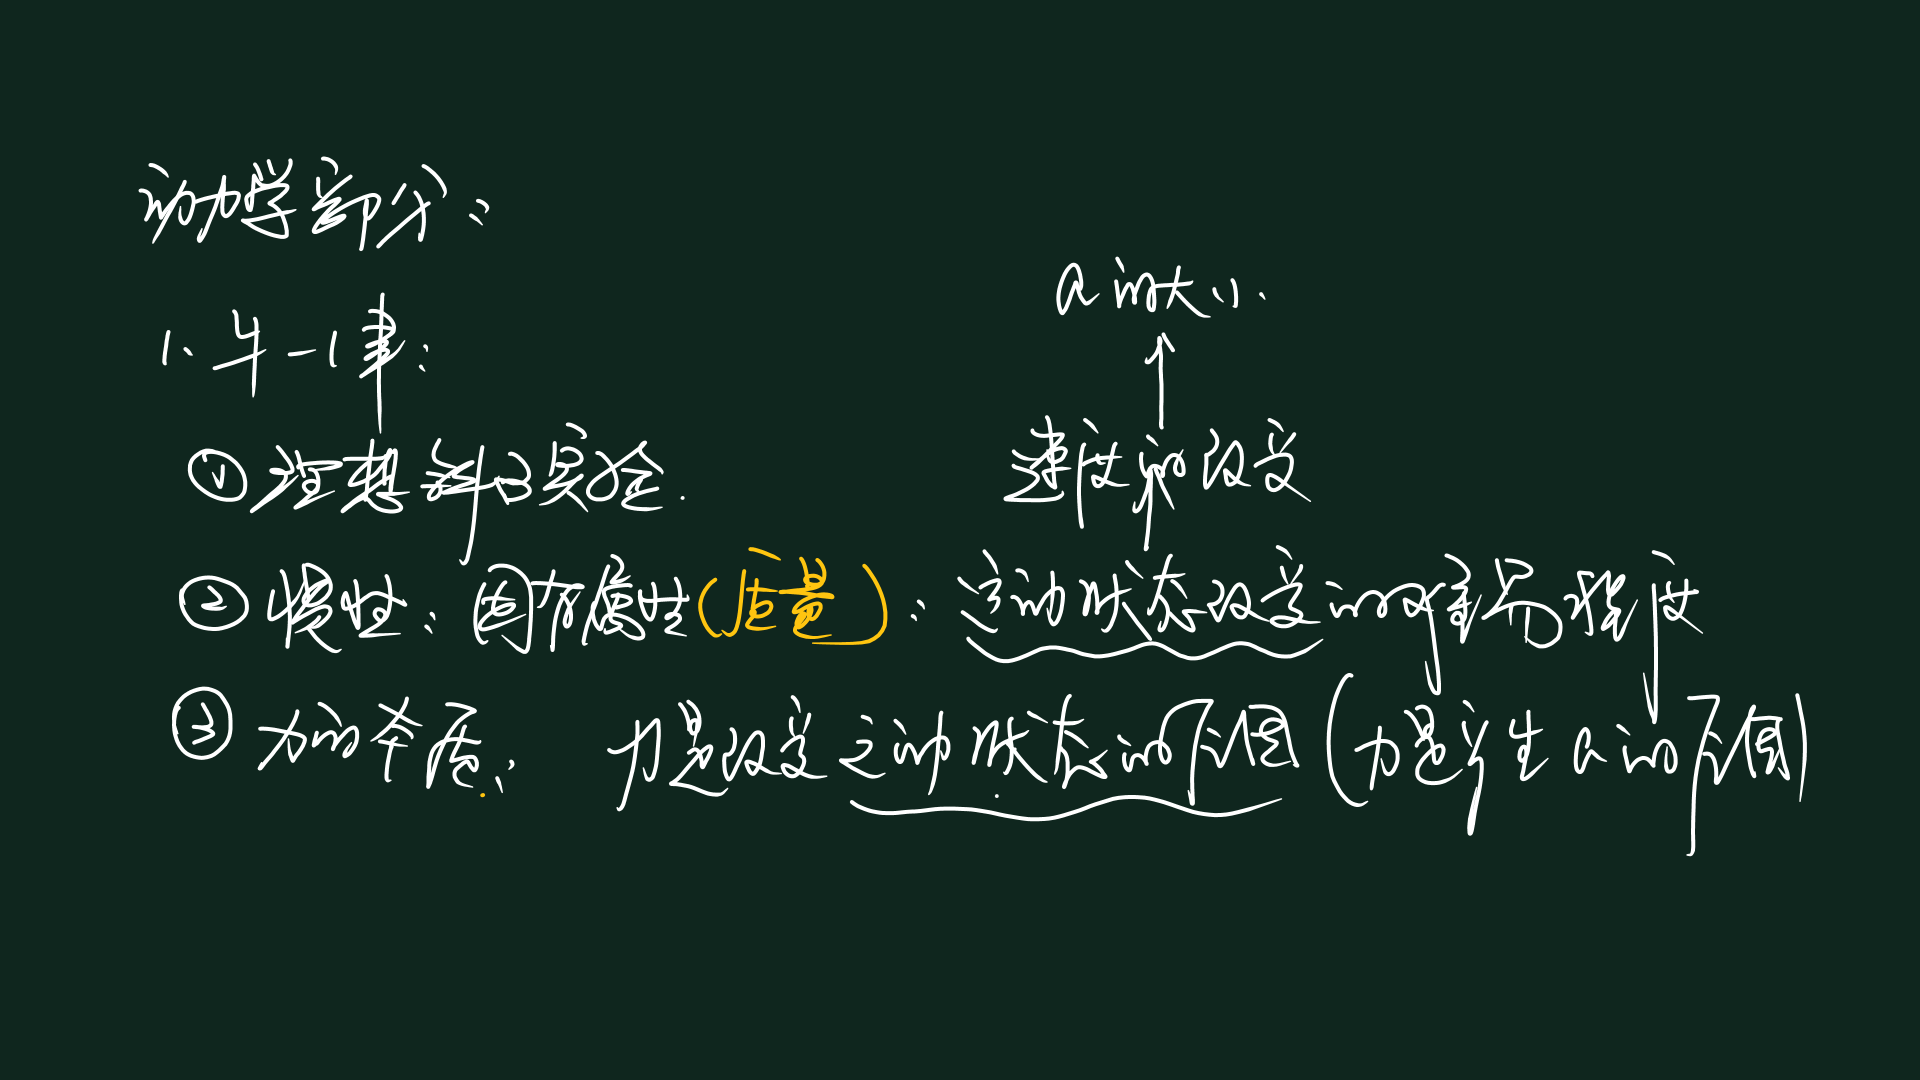 动力学部分：
1、牛一律：
a的大小.
①理想斜面实验.
速度的改变
②惯性：固有属性(质量)：运动状态改变的难易程度
③力的本质：力是改变运动状态的原因(力是产生a的原因)